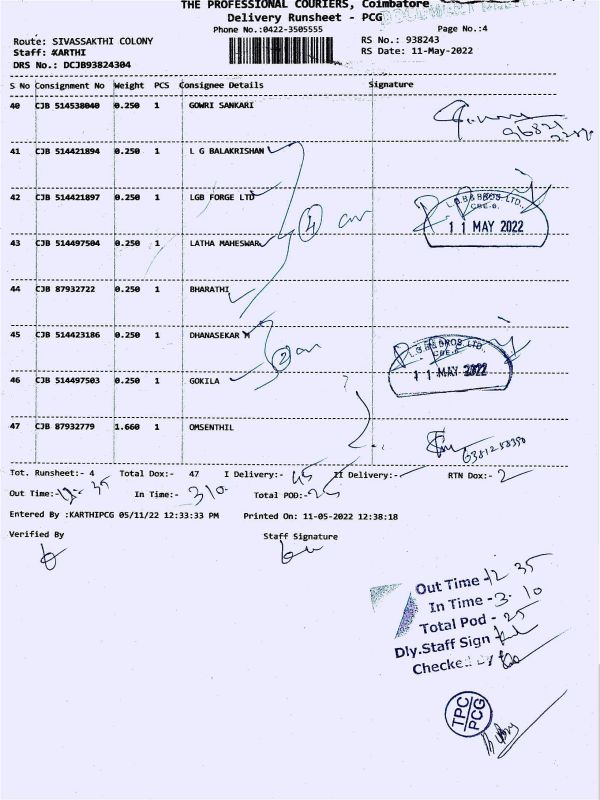 THE PROFESSIONAL COURIERS, Coimbatore
Delivery Runsheet - PCG
Phone No.:0422-3505555
Page No.:4
Route: SIVASSAKTHI COLONY
RS No.: 938243
Staff: KARTHI
RS Date: 11-May-2022
DRS No.: DCJB93824304
S No Consignment No Weight PCS Consignee Details Signature
40 CJB 514538040 0.250 1 GOWRI SANKARI
41 CJB 514421894 0.250 1 L G BALAKRISHAN
42 CJB 514421897 0.250 1 LGB FORGE LTD
L.G.B&BROS LTD.,
CBE-6.
11 MAY 2022
4
43 CJB 514497504 0.250 1 LATHA MAHESWAR
44 CJB 87932722 0.250 1 BHARATHI
45 CJB 514423186 0.250 1 DHANASEKAR M
2
L.G.B&BROS LTD.,
CBE-6
11 MAY 2022
46 CJB 514497503 0.250 1 GOKILA
47 CJB 87932779 1.660 1 OMSENTHIL
Tot. Runsheet:- 4 Total Dox:- 47 I Delivery:- 45 II Delivery:- RTN Dox:- 2
Out Time:- 12-35 In Time:- 310 Total POD:- 25
Entered By :KARTHIPCG 05/11/22 12:33:33 PM Printed On: 11-05-2022 12:38:18
Verified By Staff Signature
Out Time - 12 35
In Time - 3. 10
Total Pod - 25
Dly.Staff Sign
Checked By
TPC
PCG